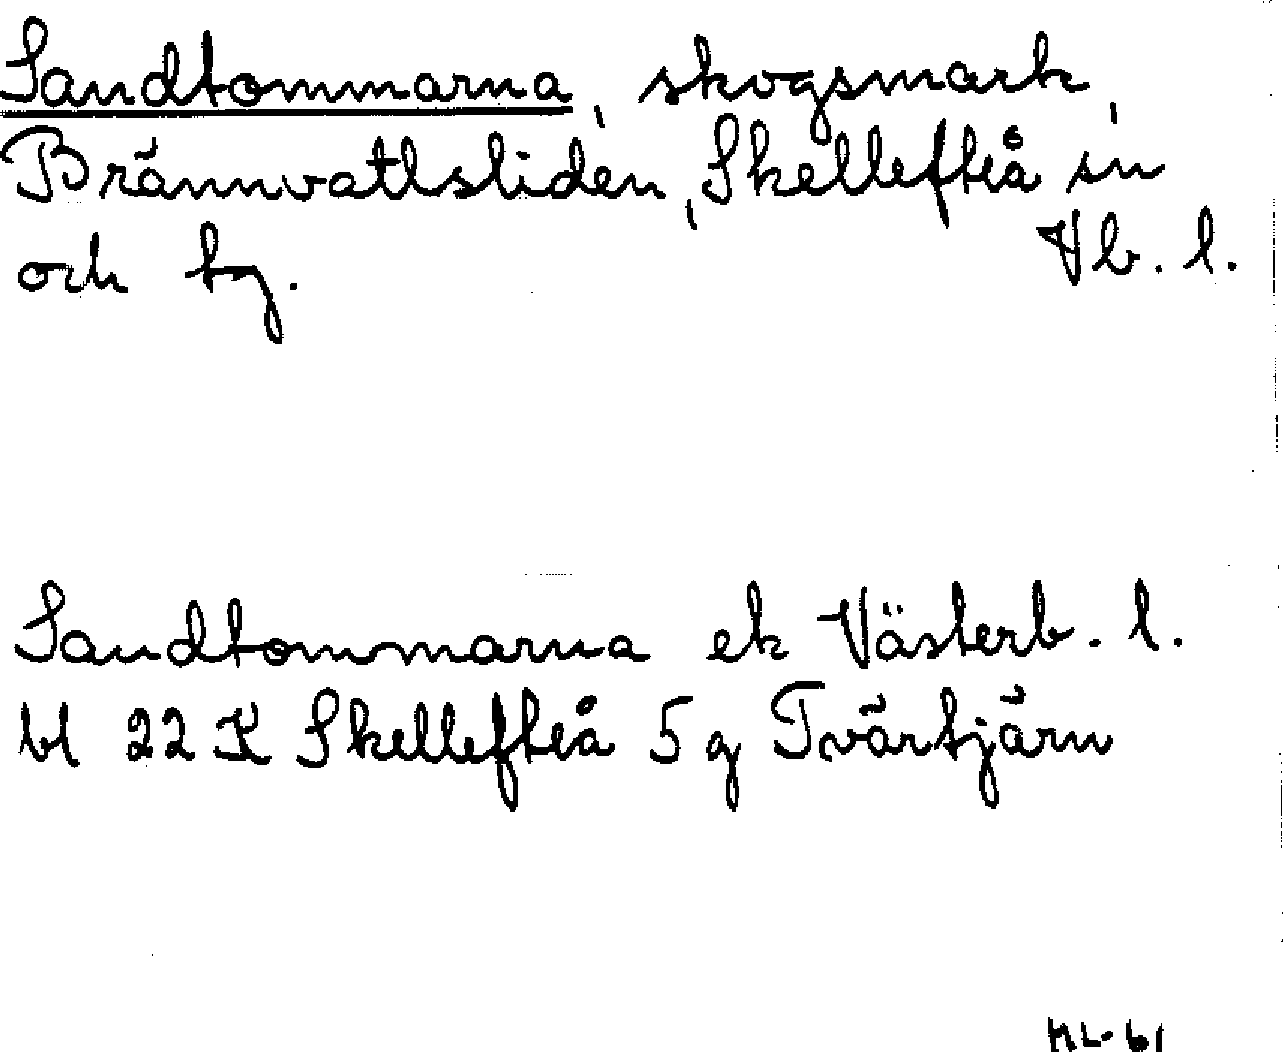 Sandtommarna, skogsmark,
Brännvattsliden, Skellefteå sn
och tg. Vb. l.
Sandtommarna ek Västerb. l.
bl 22 K Skellefteå 5 g Tvärtjärn
ML-61